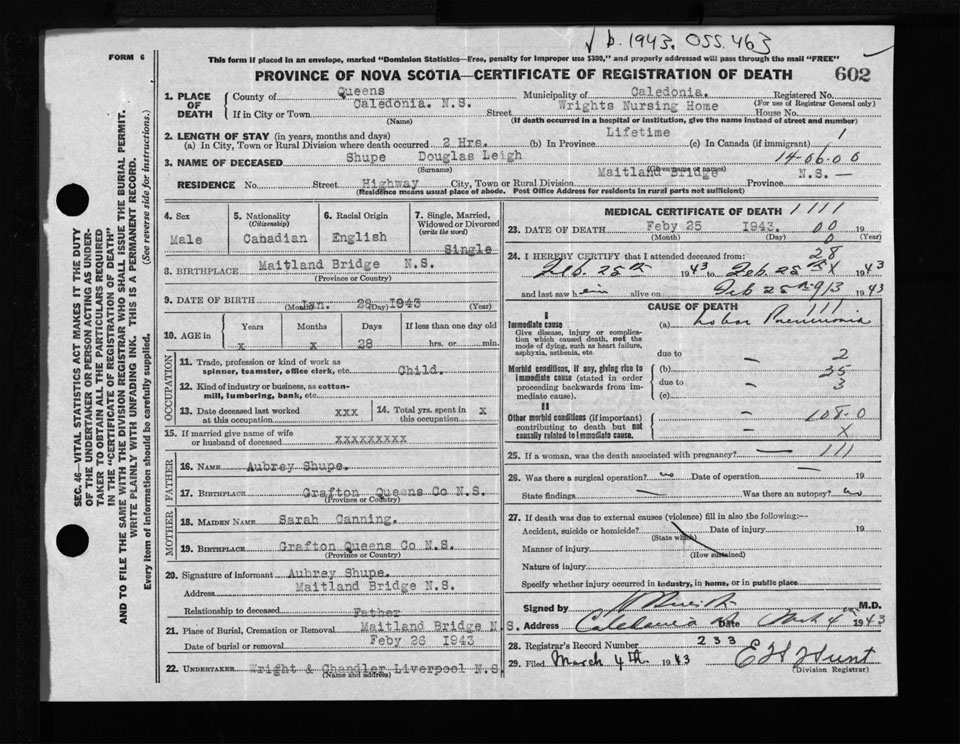 b. 1943. OSS. 463
FORM 6
This form if placed in an envelope, marked "Dominion Statistics—Free, penalty for improper use $300," and properly addressed will pass through the mail "FREE"
PROVINCE OF NOVA SCOTIA—CERTIFICATE OF REGISTRATION OF DEATH 602
1. PLACE OF DEATH
County of Queens Municipality of Caledonia. Registered No.
(For use of Registrar General only)
If in City or Town Caledonia. N.S. Street Wrights Nursing Home House No.
(Name) (If death occurred in a hospital or institution, give the name instead of street and number)
2. LENGTH OF STAY (in years, months and days)
(a) In City, Town or Rural Division where death occurred 2 Hrs. (b) In Province Lifetime (c) In Canada (if immigrant) 1
3. NAME OF DECEASED Shupe Douglas Leigh 14-06-00
(Surname) (Given name or names)
RESIDENCE No. Street Highway City, Town or Rural Division Maitland Bridge Province N.S. —
(Residence means usual place of abode. Post Office Address for residents in rural parts not sufficient)
4. Sex
Male
5. Nationality
(Citizenship)
Canadian
6. Racial Origin
English
7. Single, Married, Widowed or Divorced
(write the word)
Single
8. BIRTHPLACE Maitland Bridge N.S.
(Province or Country)
9. DATE OF BIRTH Jan. 28 1943
(Month) (Day) (Year)
10. AGE in
Years Months Days If less than one day old
x x 28 hrs. or min.
OCCUPATION
11. Trade, profession or kind of work as
spinner, teamster, office clerk, etc. Child.
12. Kind of industry or business, as cotton-
mill, lumbering, bank, etc.
13. Date deceased last worked
at this occupation xxx
14. Total yrs. spent in
this occupation x
15. If married give name of wife
or husband of deceased xxxxxxxxx
FATHER
16. NAME Aubrey Shupe.
17. BIRTHPLACE Grafton Queens Co N.S.
(Province or Country)
MOTHER
18. MAIDEN NAME Sarah Canning.
19. BIRTHPLACE Grafton Queens Co N.S.
(Province or Country)
20. Signature of informant Aubrey Shupe.
Address Maitland Bridge N.S.
Relationship to deceased Father
21. Place of Burial, Cremation or Removal Maitland Bridge N.S.
Date of burial or removal Feby 26 1943
22. UNDERTAKER Wright & Chandler Liverpool N.S.
(Name and address)
MEDICAL CERTIFICATE OF DEATH 1111
23. DATE OF DEATH Feby 25 1943. 00 19
(Month) (Day) (Year)
0
24. I HEREBY CERTIFY that I attended deceased from: 28
Feb. 25th 1943 to Feb. 25th X 1943
and last saw him alive on Feb 25th 9/3 1943
CAUSE OF DEATH
111
I
Immediate cause
Give disease, injury or complication which caused death, not the mode of dying, such as heart failure, asphyxia, asthenia, etc.
(a) Lobar Pneumonia
due to — 2
Morbid conditions, if any, giving rise to immediate cause (stated in order proceeding backwards from immediate cause).
(b) 35
due to — 3
(c)
II
Other morbid conditions (if important) contributing to death but not causally related to immediate cause.
— 108-0
— X
25. If a woman, was the death associated with pregnancy? — 111
26. Was there a surgical operation? no Date of operation — 19
State findings — Was there an autopsy? no
27. If death was due to external causes (violence) fill in also the following:—
Accident, suicide or homicide? Date of injury 19
(State which)
Manner of injury
(How sustained)
Nature of injury
Specify whether injury occurred in industry, in home, or in public place
Signed by M.D.
Address Caledonia Date March 4th 1943
28. Registrar's Record Number 233
29. Filed March 4th 1943 E H Hunt
(Division Registrar)
SEC. 46—VITAL STATISTICS ACT MAKES IT THE DUTY
OF THE UNDERTAKER OR PERSON ACTING AS UNDER-
TAKER TO OBTAIN ALL THE PARTICULARS REQUIRED
IN THE "CERTIFICATE OF REGISTRATION OF DEATH"
AND TO FILE THE SAME WITH THE DIVISION REGISTRAR WHO SHALL ISSUE THE BURIAL PERMIT.
WRITE PLAINLY WITH UNFADING INK. THIS IS A PERMANENT RECORD.
Every item of information should be carefully supplied. (See reverse side for instructions.)